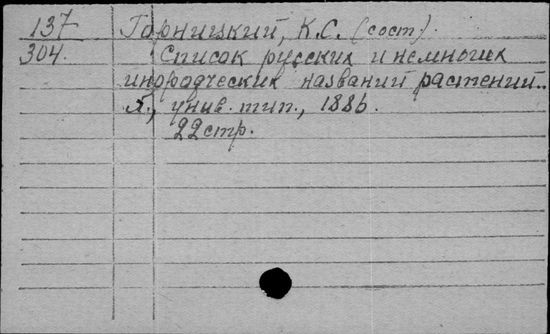 137 Горницкий, К.С. (сост).
304. Список русских и немногих
инородческих названий растений..
Х., унив. тип., 1886.
22 стр.